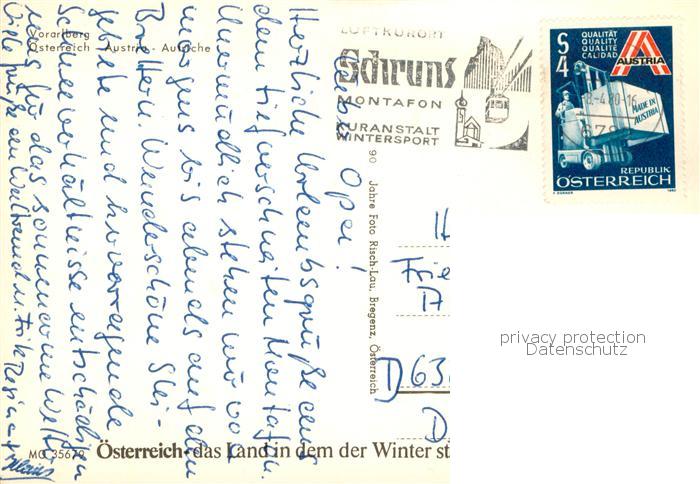 Vorarlberg
Österreich - Austria - Autriche
LUFTKURORT
Schruns
MONTAFON
KURANSTALT
WINTERSPORT
QUALITÄT
QUALITY
QUALITÉ
CALIDAD
S
4
AUSTRIA
-4.80-16
MADE IN
AUSTRIA
REPUBLIK
ÖSTERREICH
Lieber Opa!
Herzliche Urlaubsgrüße aus
dem tiefverschneiten Montafon.
Unermüdlich stehen wir von
morgens bis abends auf den
Brettern. Wunderschöne Ski-
gebiete und hervorragende
Schneeverhältnisse entschädigen
uns für das sonnenarme Wetter.
Viele Grüße an
90 Jahre Foto Risch-Lau, Bregenz, Österreich
H
Frie
D 63
D
MO 35679
Österreich - das Land in dem der Winter st
privacy protection
Datenschutz